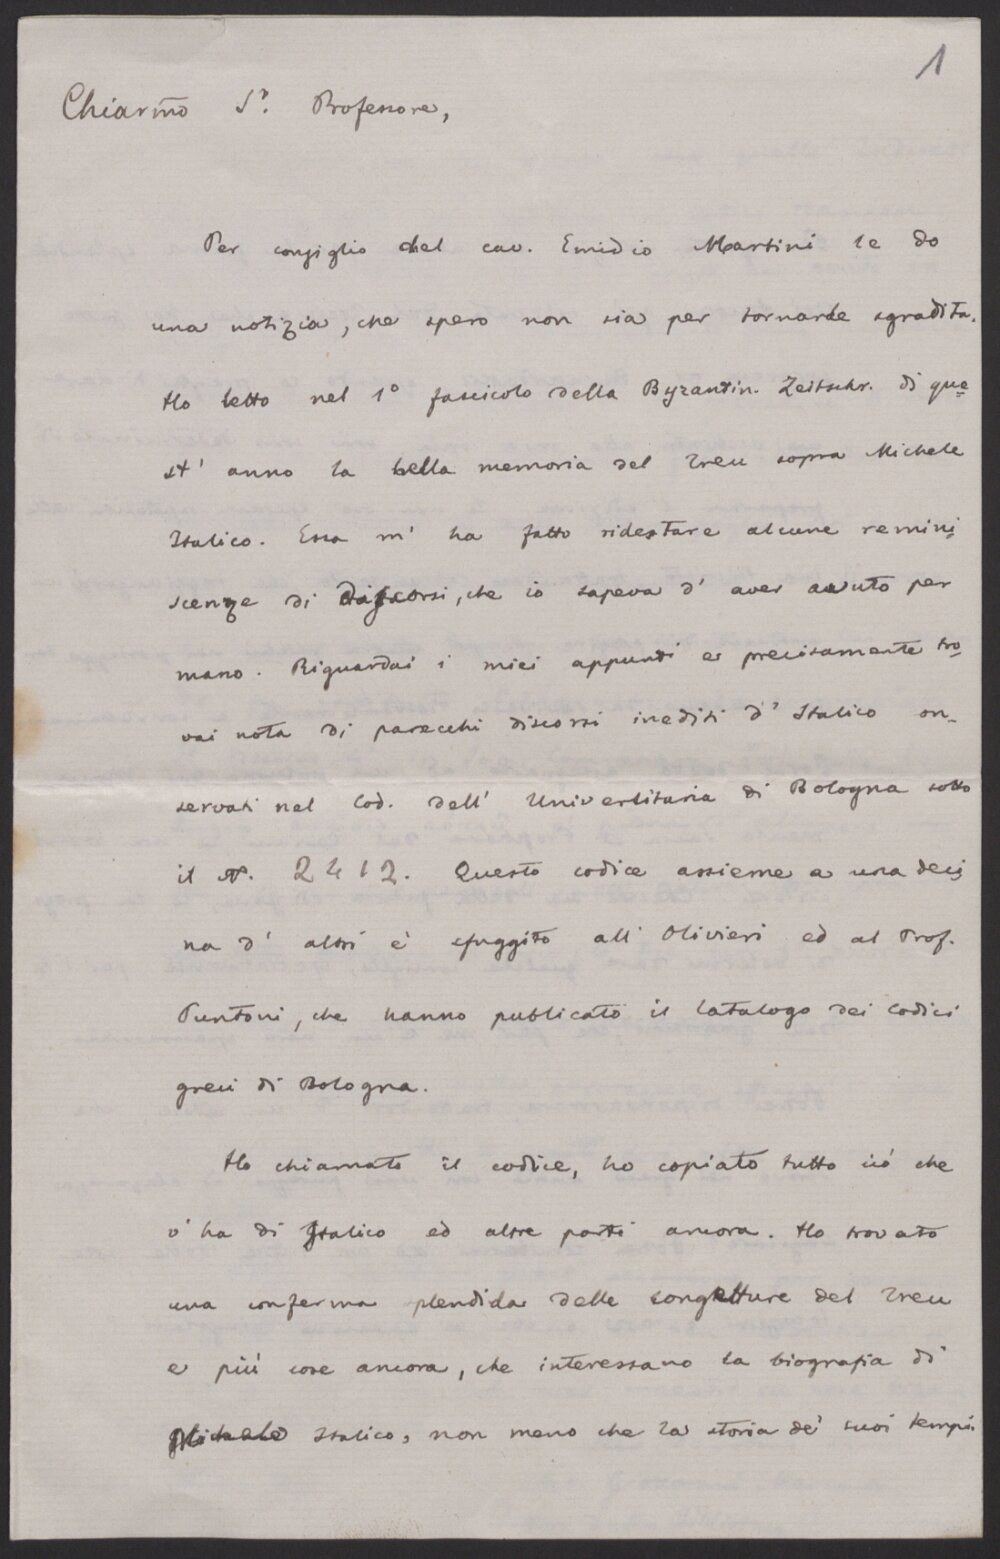 1
Chiarmo Sr. Professore,
Per consiglio del cav. Emidio Martini le do
una notizia, che spero non sia per tornarle sgradita.
Ho letto nel 1° fascicolo della Byzantin. Zeitschr. di que=
st' anno la bella memoria del Treu sopra Michele
Italico. Essa m' ha fatto ridestare alcune remini=
scenze di discorsi, che io sapeva d' aver avuto per
mano. Riguardai i miei appunti e precisamente tro=
vai nota di parecchi discorsi inediti d' Italico con=
servati nel Cod. dell' Universitaria di Bologna sotto
il N. 2412. Questo codice assieme a una deci=
na d' altri è sfuggito all' Olivieri ed al Prof.
Puntoni, che hanno publicato il Catalogo dei Codici
greci di Bologna.
Ho chiamato il codice, ho copiato tutto ciò che
v' ha di Italico ed altre parti ancora. Ho trovato
una conferma splendida delle congetture del Treu
e più cose ancora, che interessano la biografia di
Michele Italico, non meno che la storia de' suoi tempi.